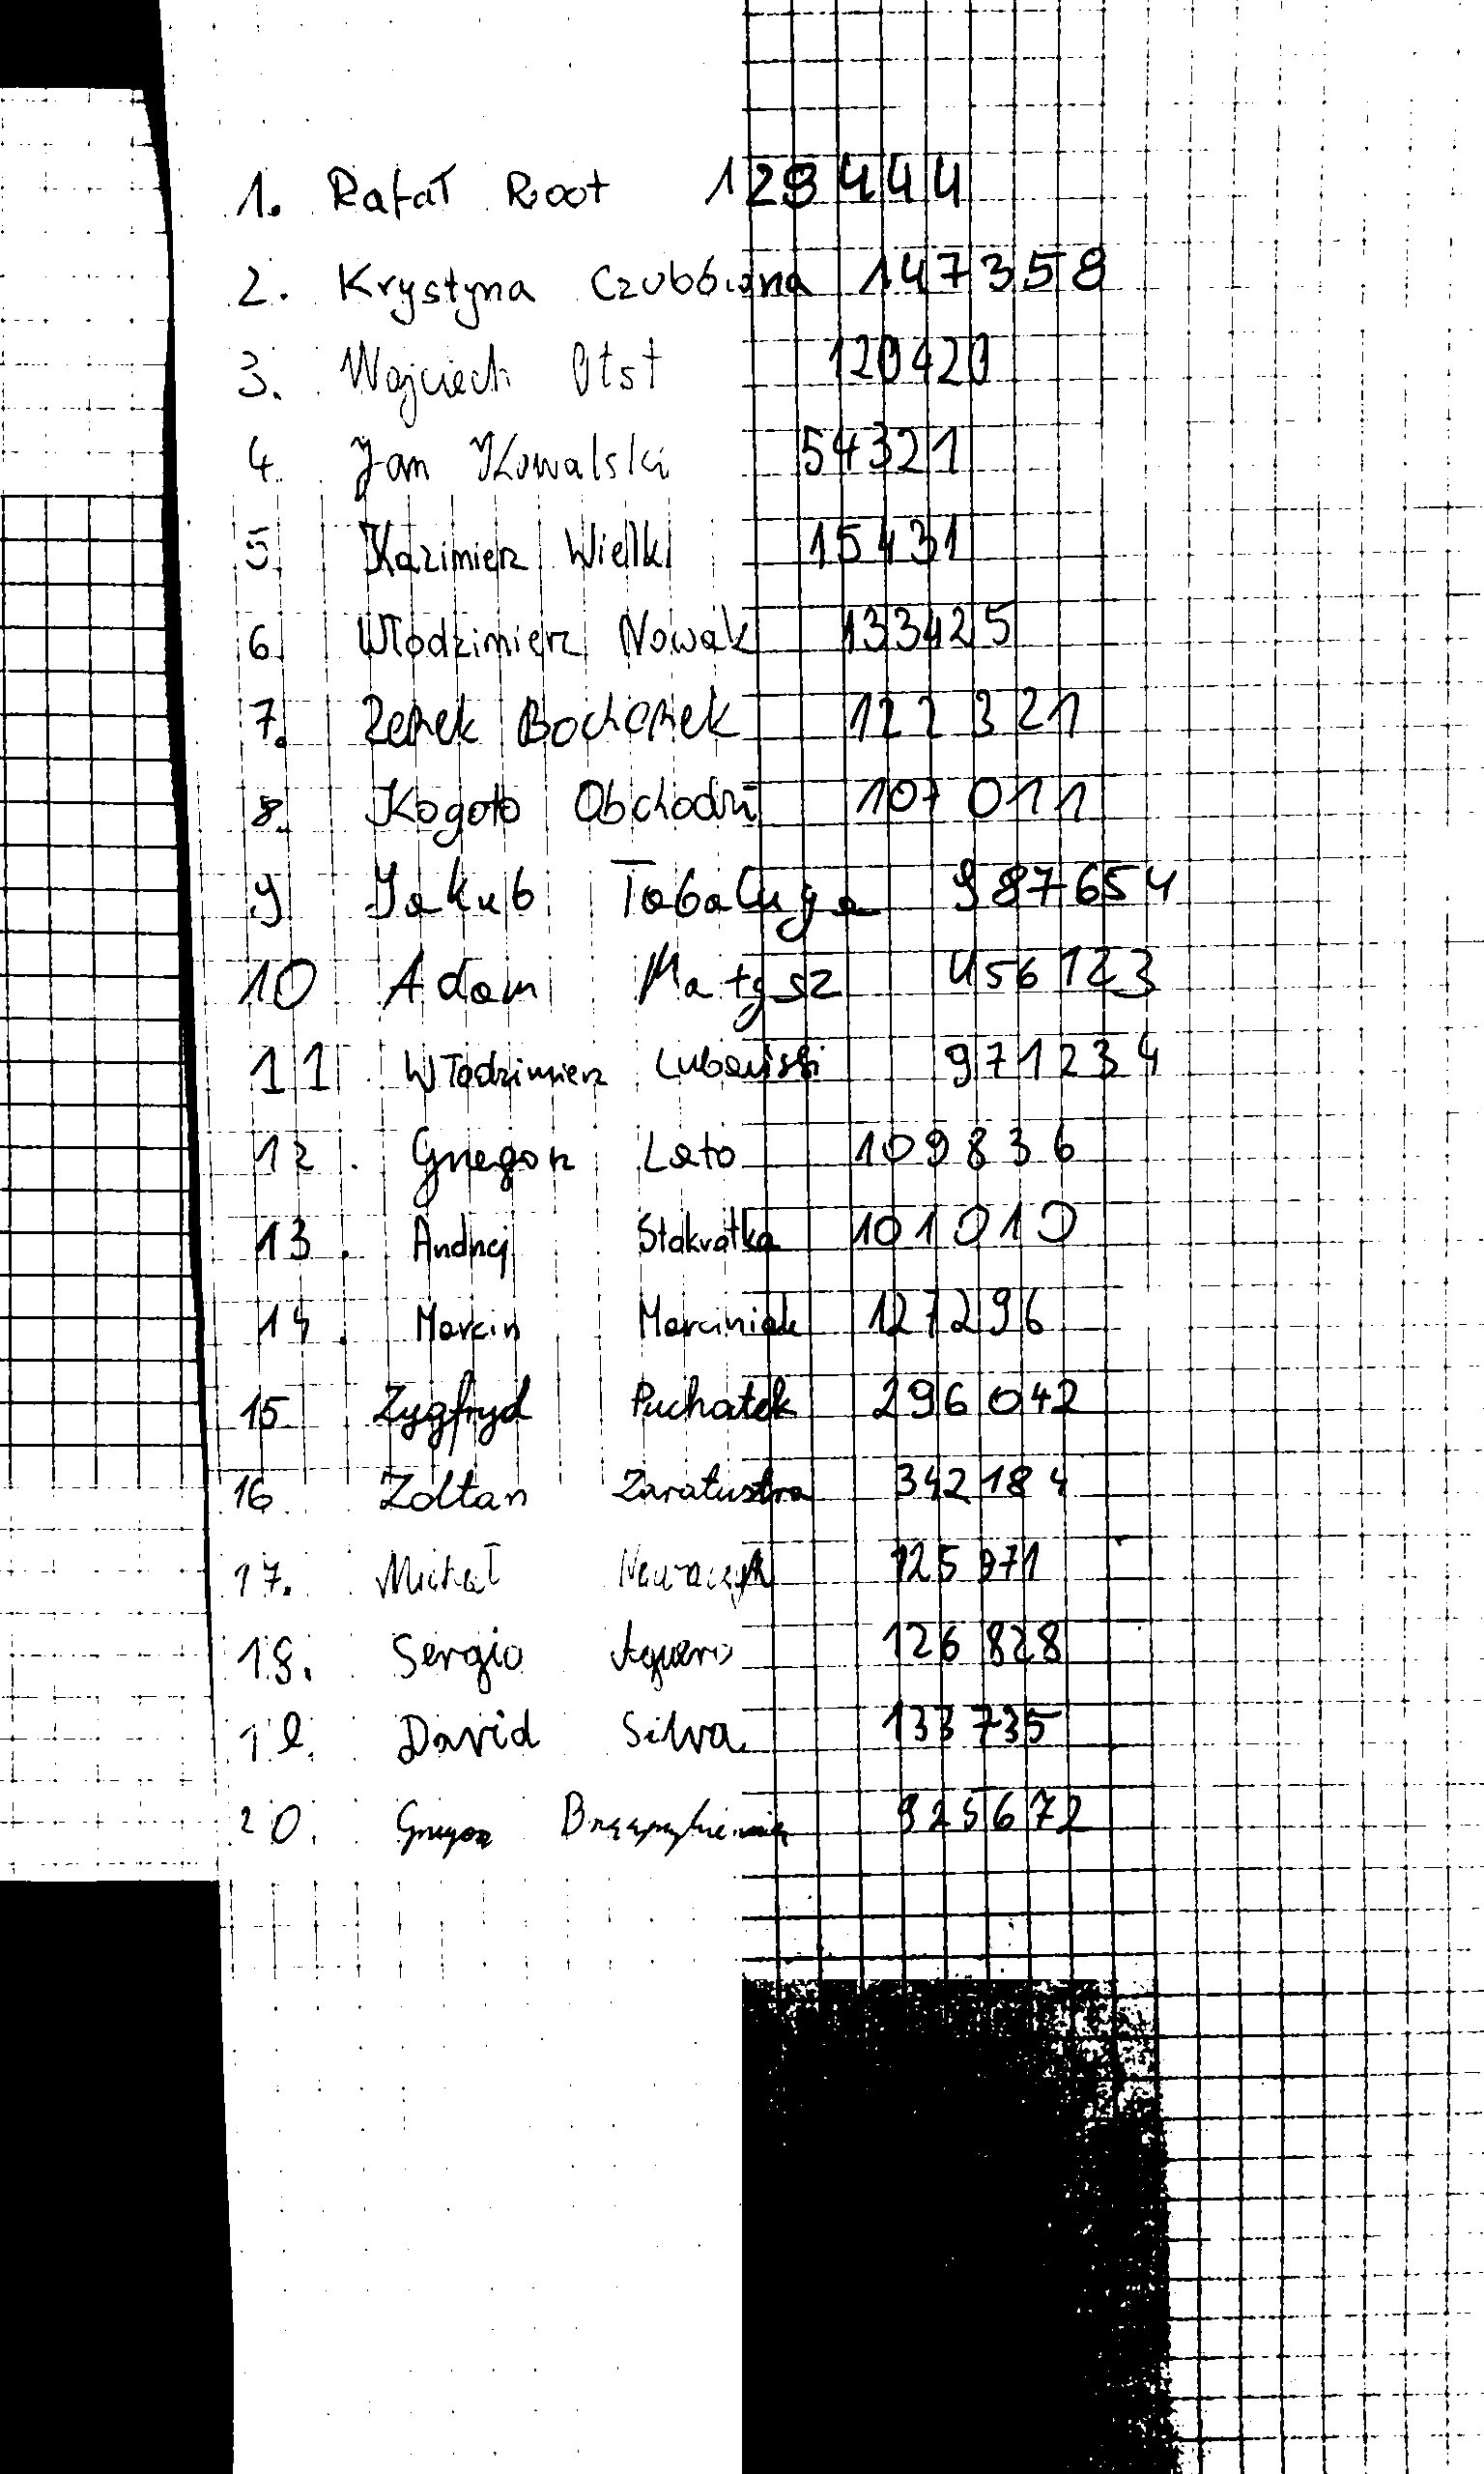 1. Rafał Root 129444
2. Krystyna Czubówna 147358
3. Wojciech Otst 120420
4. Jan Kowalski 54321
5. Kazimierz Wielki 15431
6. Włodzimierz Nowak 133425
7. Zenek Bochenek 122321
8. Kogoto Obchodzi 107011
9 Jakub Tabaluga 987654
10 Adam Małysz 456123
11 Włodzimierz Lubański 971234
12. Grzegorz Lato 109836
13. Andrzej Stokrotka 101010
14. Marcin Marciniak 127296
15 Zygfryd Puchatek 296042
16 Zoltan Zaratustra 342184
17. Michał 125971
18. Sergio Aguero 126828
19. David Silva 133735
20. Grzegorz 925672